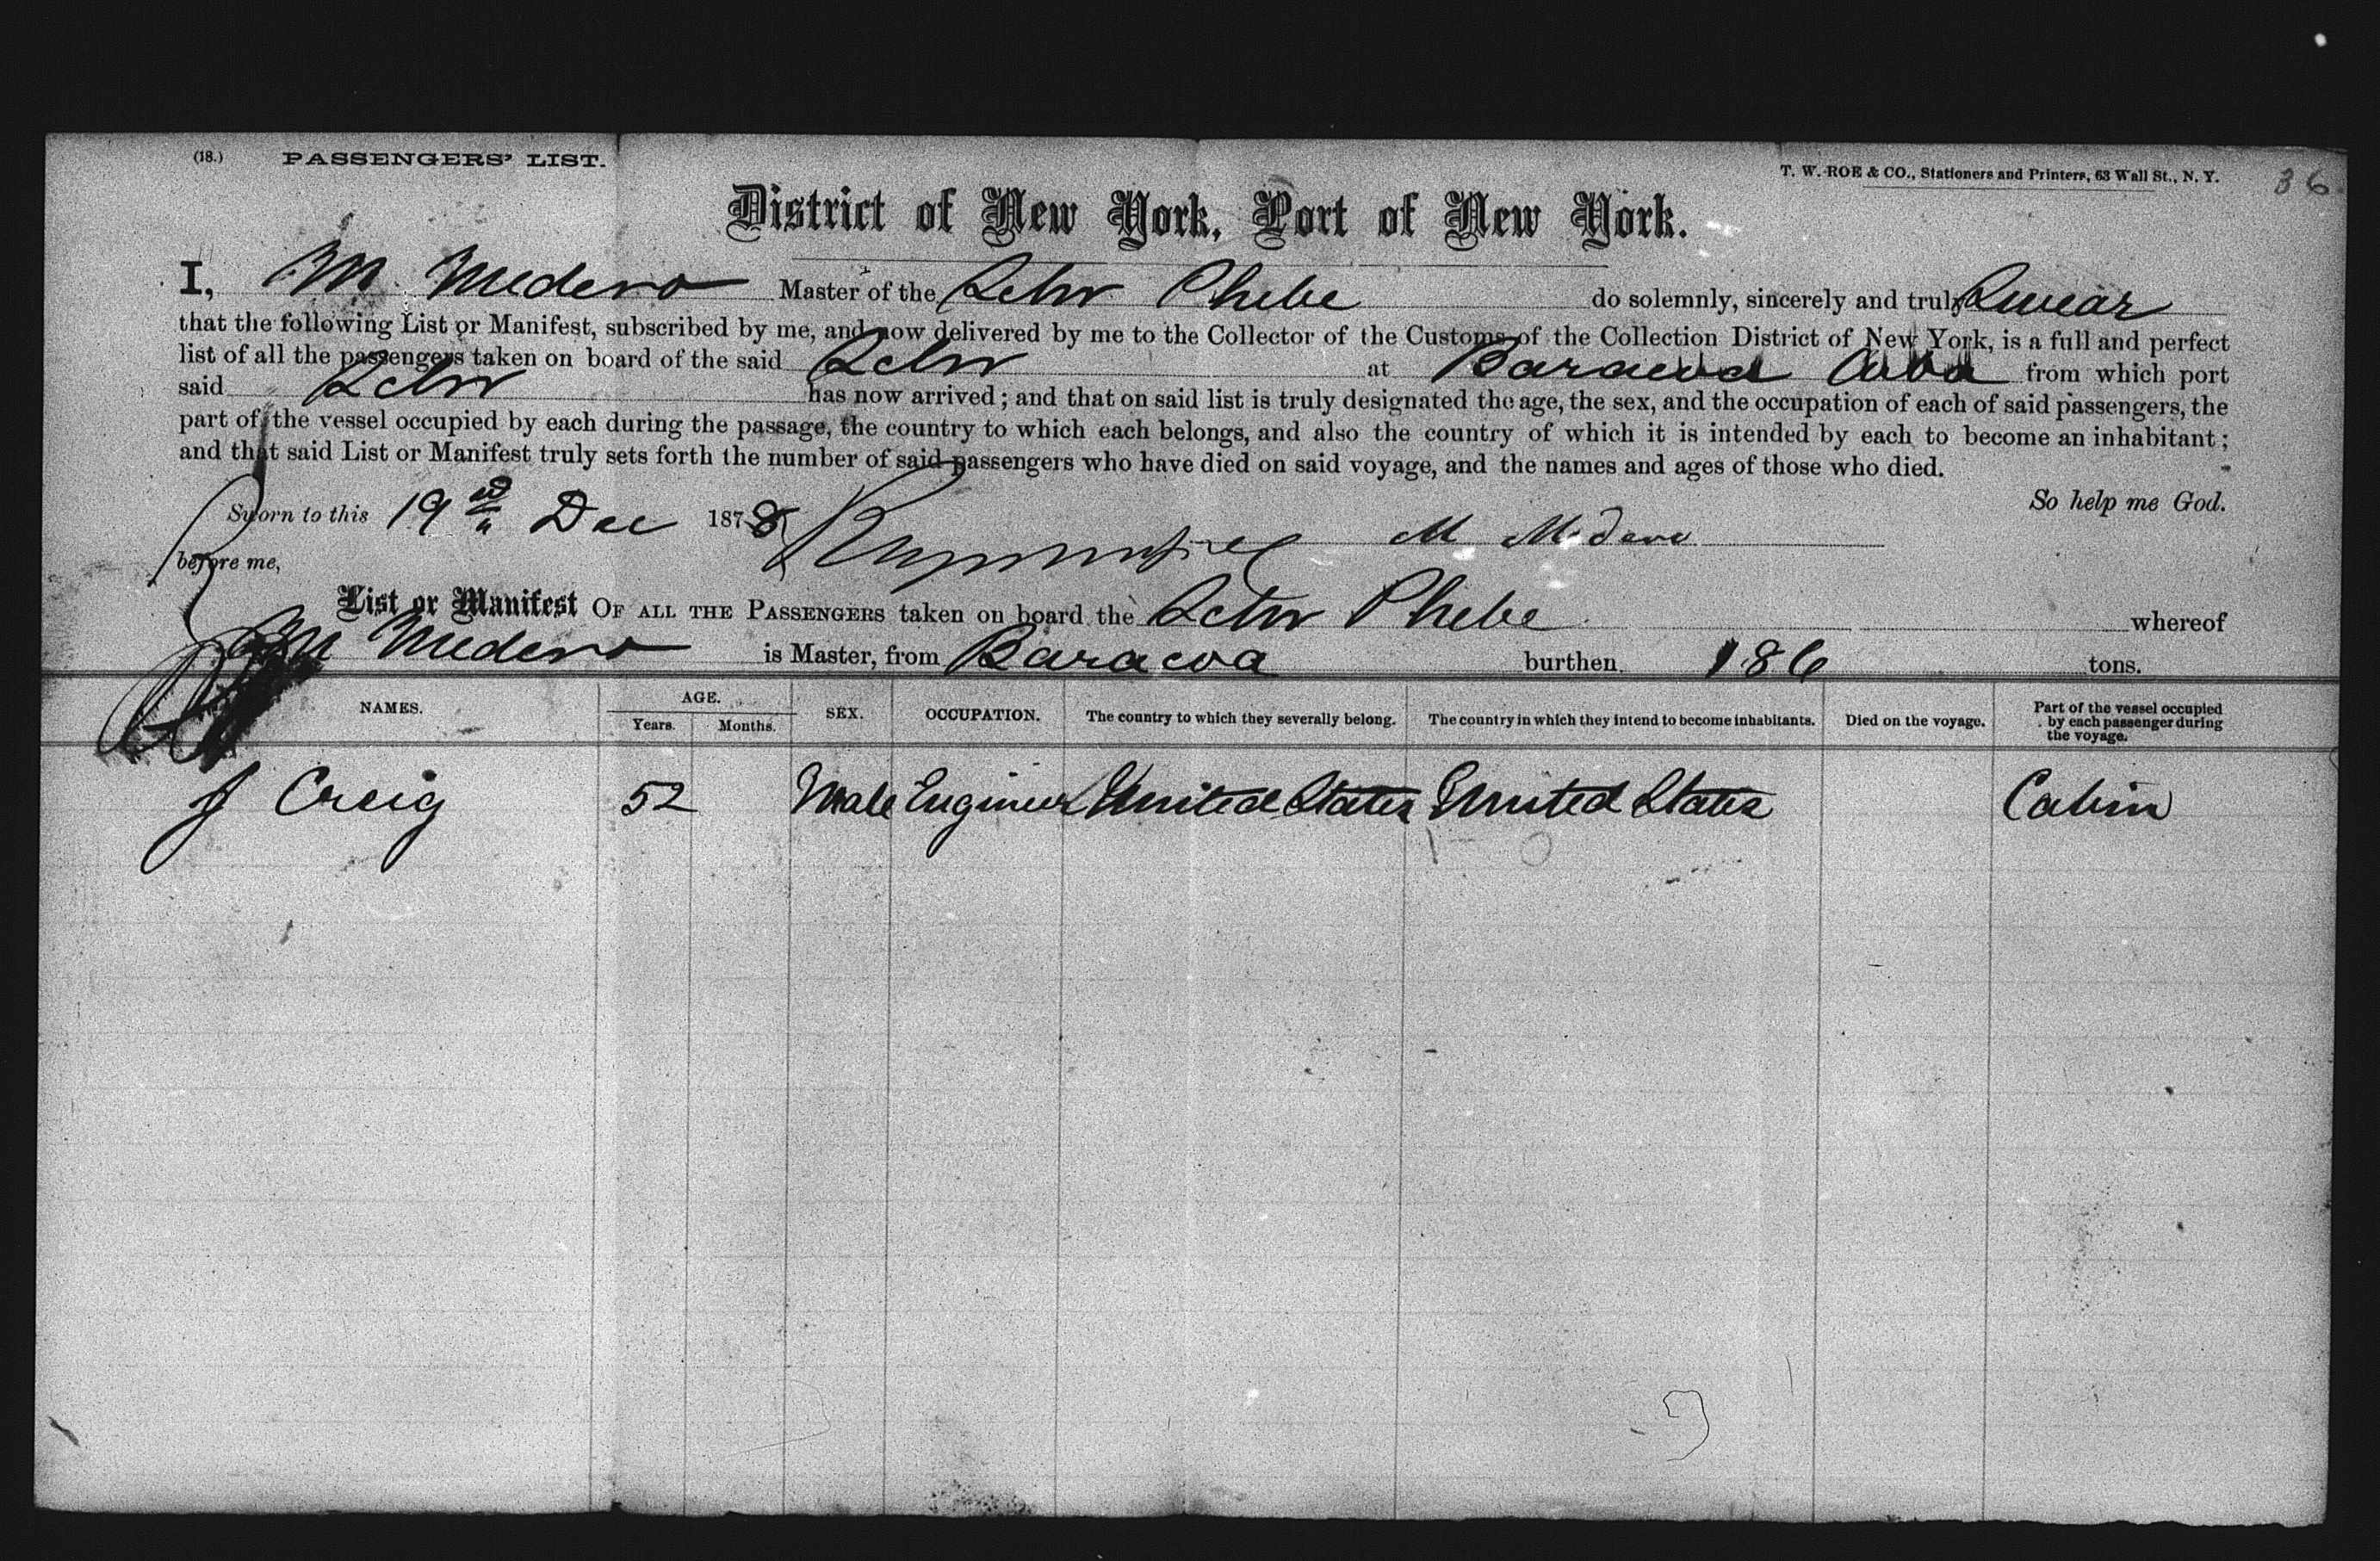 (18.) PASSENGERS' LIST.
T. W. ROE & CO., Stationers and Printers, 63 Wall St., N. Y. 36
District of New York, Port of New York.
I, M Medero Master of the Schr Phebe do solemnly, sincerely and truly Swear
that the following List or Manifest, subscribed by me, and now delivered by me to the Collector of the Customs of the Collection District of New York, is a full and perfect
list of all the passengers taken on board of the said Schr at Baracoa Cuba from which port
said Schr has now arrived; and that on said list is truly designated the age, the sex, and the occupation of each of said passengers, the
part of the vessel occupied by each during the passage, the country to which each belongs, and also the country of which it is intended by each to become an inhabitant;
and that said List or Manifest truly sets forth the number of said passengers who have died on said voyage, and the names and ages of those who died.
So help me God.
Sworn to this 19 Dec 1878 M Medero
before me,
List or Manifest OF ALL THE PASSENGERS taken on board the Schr Phebe whereof
M Medero is Master, from Baracoa burthen 186 tons.
NAMES. AGE. Years. Months. SEX. OCCUPATION. The country to which they severally belong. The country in which they intend to become inhabitants. Died on the voyage. Part of the vessel occupied by each passenger during the voyage.
J Creig 52 Male Engineer United States United States Cabin